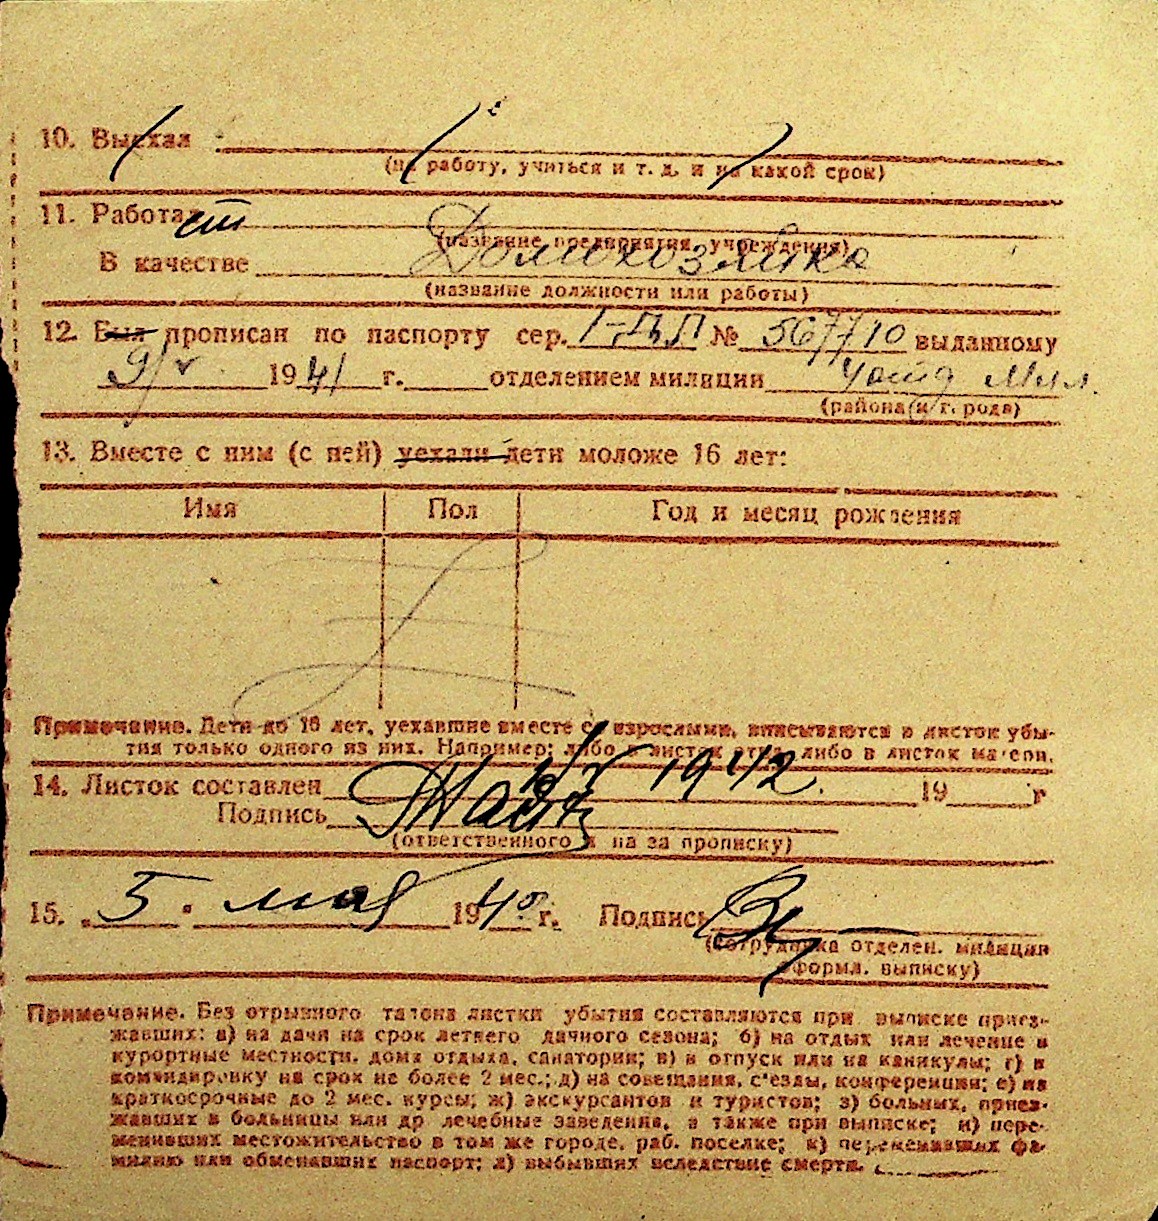 10. Выехал
(на работу, учиться и т. д. и на какой срок)
11. Работает
(название предприятия, учреждения)
В качестве Домохозяйка
(название должности или работы)
12. Был прописан по паспорту сер. 1-ДЛ № 567710 выданному
9/V 1941 г. отделением милиции Мил.
(района и г. рода)
13. Вместе с ним (с ней) уехали дети моложе 16 лет:
Имя Пол Год и месяц рождения
Примечание. Дети до 16 лет, уехавшие вместе с взрослыми, вписываются в листок убы-
тия только одного из них. Например: либо в листок отца, либо в листок матери.
14. Листок составлен 1942. 19 г
Подпись
(ответственного за прописку)
15. „5" мая 194 г. Подпись
(сотрудника отделен. милиции
оформл. выписку)
Примечание. Без отрывного талона листки убытия составляются при выписке приез-
жавших: а) на дачи на срок летнего дачного сезона; б) на отдых или лечение в
курортные местности, дома отдыха, санатории; в) в отпуск или на каникулы; г) в
командировку на срок не более 2 мес.; д) на совещания, с'езды, конференции; е) на
краткосрочные до 2 мес. курсы; ж) экскурсантов и туристов; з) больных, приез-
жавших в больницы или др лечебные заведения, а также при выписке; и) пере-
менивших местожительство в том же городе, раб. поселке; к) переменивших фа-
милию или обменявших паспорт; л) выбывших вследствие смерти.